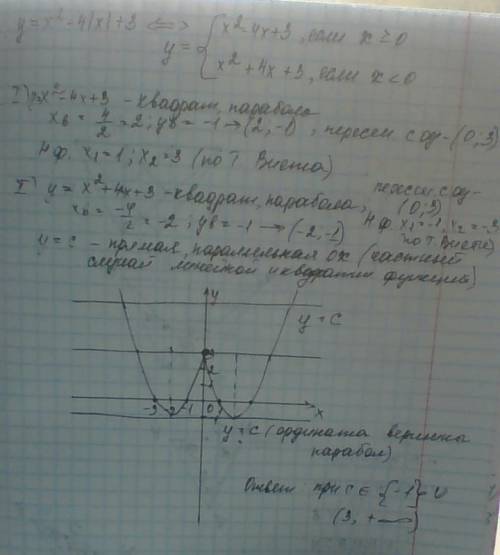 y = x² - 4|x| + 3 <=> y = { x² - 4x + 3, если x ≥ 0
x² + 4x + 3, если x < 0
I) y = x² - 4x + 3 - квадрат, парабола
x₀ = 4/2 = 2; y₀ = -1 → (2, -1), пересеч. с оу - (0; 3)
н.ф. x₁ = 1; x₂ = 3 (по т. Виета)
II) y = x² + 4x + 3 - квадрат, парабола, пересеч. с оу - (0; 3)
x₀ = -4/2 = -2; y₀ = -1 → (-2, -1) н.ф. x₁ = -1, x₂ = -3 (по т. Виета)
y = c - прямая, параллельная ox (частный
случай линейной и квадратич функций)
y
y = c
3
2
1
-3 -2 -1 0 x
y = c (ордината вершины
парабол)
Ответ при c ∈ {-1} ∪
(3, +∞)